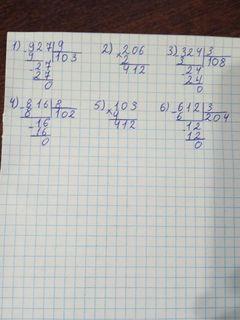 1) 927 9 2) 206 3) 324 3
- 9 103 × 2 - 3 108
- 27 412 - 24
27 24
0 0
4) 816 8 5) 103 6) 612 3
- 8 102 × 4 - 6 204
- 16 412 - 12
16 12
0 0